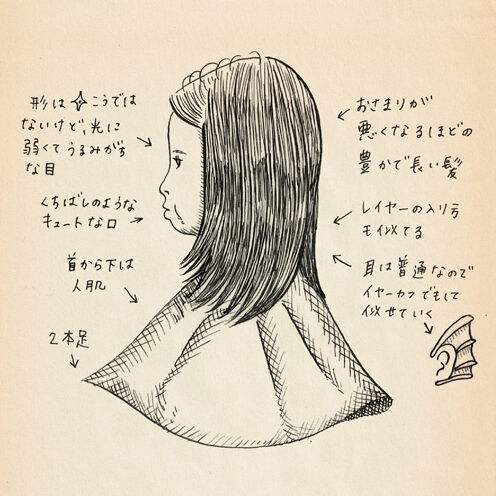 形は✧こうでは
ないけど、光に
弱くてうるみがち
な目
くちばしのような
キュートな口
首から下は
人肌
2本足
おさまりが
悪くなるほどの
豊かで長い髪
レイヤーの入り方
も似てる
耳は普通なので
イヤーカフでもして
似せていく